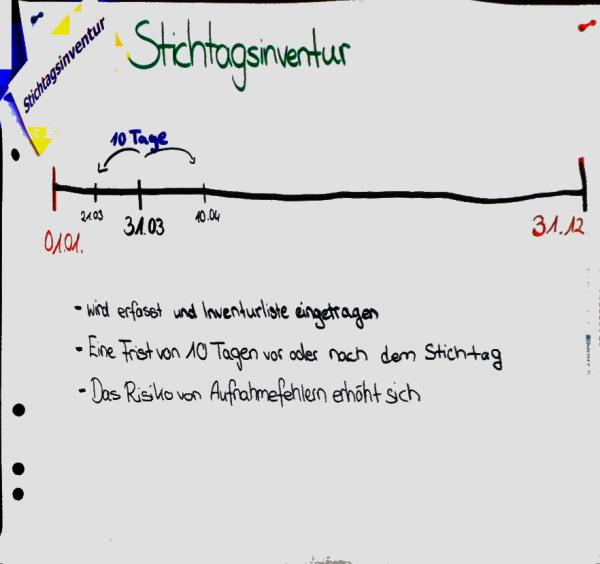 Stichtagsinventur
Stichtagsinventur
10 Tage
21.03
31.03
10.04
01.01.
31.12
- wird erfasst und Inventurliste eingetragen
- Eine Frist von 10 Tagen vor oder nach dem Stichtag
- Das Risiko von Aufnahmefehlern erhöht sich